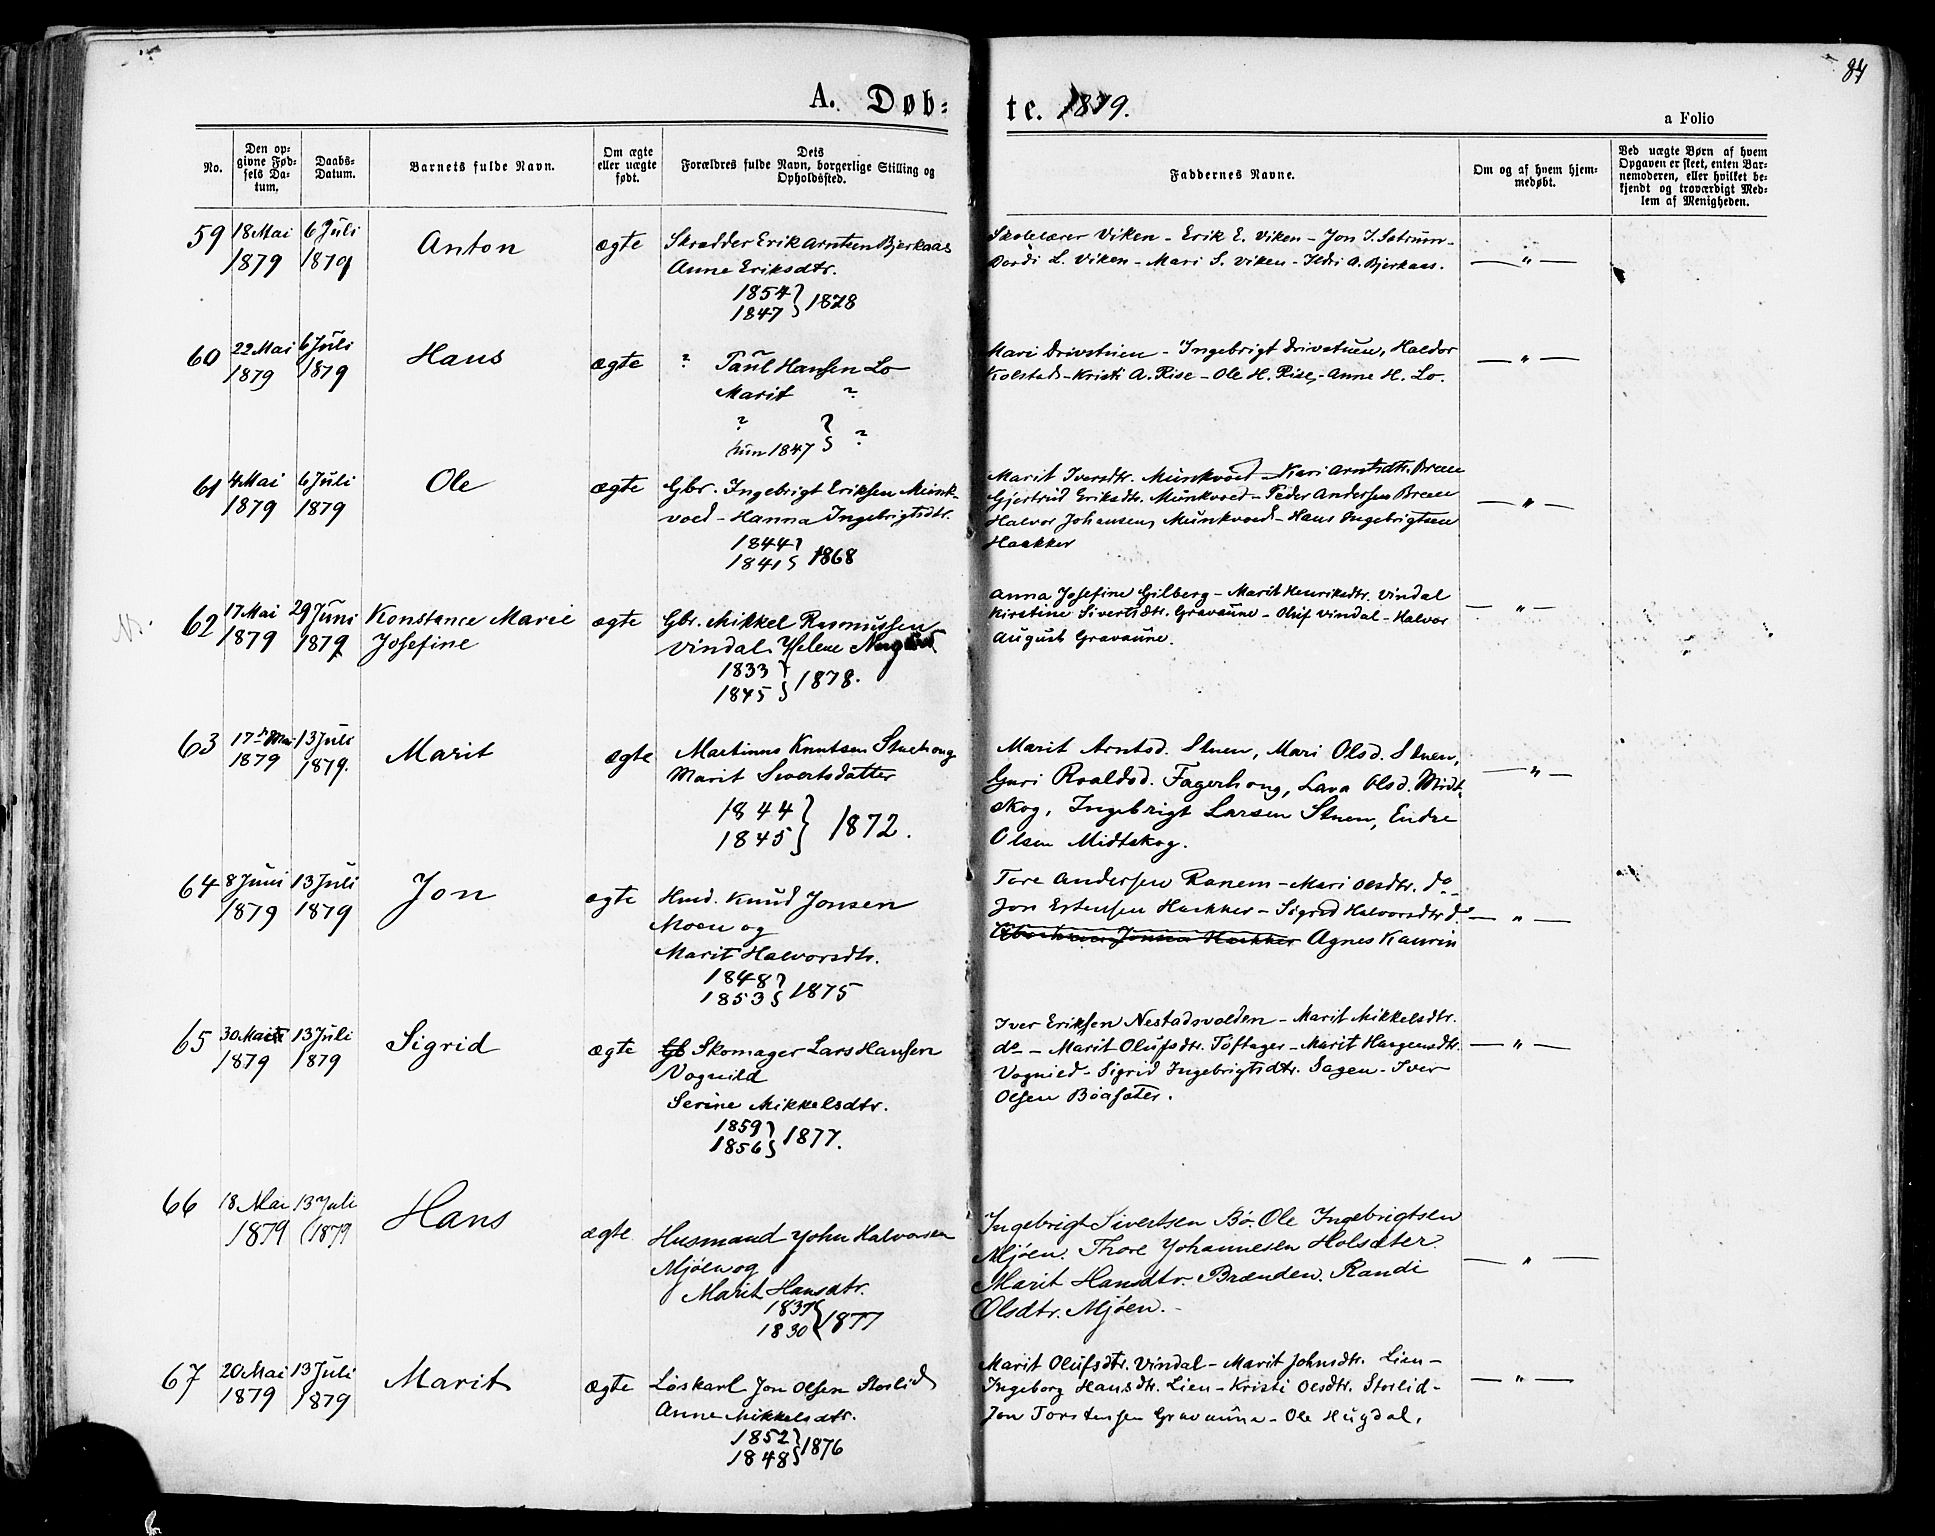 84
A. Døb=
te. 1879.
a Folio
No.
Den op-
givne Fød-
sels Da-
tum.
Daabs-
Datum.
Barnets fulde Navn.
Om ægte
eller uægte
født.
Dets
Forældres fulde Navn, borgerlige Stilling og
Opholdssted.
Faddernes Navne.
Om og af hvem hjem-
medøbt.
Ved uægte Børn af hvem
Opgaven er skeet, enten Bar-
nemoderen, eller hvilket be-
kjendt og troværdigt Med-
lem af Menigheden.
59 18 Mai 1879
6 Juli 1879
Anton
ægte
Skrædder Erik Arntsen Bjerkaas
Anne Eriksdtr.
1854
1847 } 1878
Skolelærer Viken - Erik E. Viken - Jon J. Sætrum -
Dordi L. Viken - Mari S. Viken - Ildri A. Bjerkaas.
— „ —
60 22 Mai 1879
6 Juli 1879
Hans
ægte
? Paul Hansen Lo
Marit ?
?
hun 1847 } ?
Mari Drivstuen - Ingebrigt Drivstuen, Haldor
Kolstad - Kristi A. Rise - Ole H. Rise, - Anne H. Lo.
— „ —
61 4 Mai 1879
6 Juli 1879
Ole
ægte
Gbr. Ingebrigt Eriksen Munk-
voed - Hanna Ingebrigtsdtr.
1844
1841 } 1868
Marit Iversdtr. Munkvoed - Kari Arntsdtr. Bree
Gjertrud Eriksdtr. Munkvoed - Peder Andersen Bree
Halvor Johansen, Munkvoed - Hans Ingebrigtsen
Haekker
— „ —
62 17 Mai 1879
29 Juni 1879
Konstance Marie
Josefine
ægte
Gbr. Mikkel Rasmussen
Vindal. Helene
1833
1845 } 1878.
Anna Josefine Gilberg - Marit Henriksdtr. Vindal
Kirstine Sivertsdtr. Gravaune - Oluf Vindal - Halvor
August Gravaune.
— „ —
63 17de Mai 1879
13 Juli 1879.
Marit
ægte
Martinus Knutsen Stuehoug
Marit Sivertsdatter
1844
1845 } 1872.
Marit Arntsd. Stuen, Mari Olsd. Stuen,
Guri Roaldsd. Fagerhoug, Lava Olsd. Midt-
skog, Ingebrigt Larsen Stuen, Endre
Olsen Midtskog.
— „ —
64 8 Juni 1879
13 Juli 1879
Jon
ægte
Hmd. Knud Jonsen
Moen og
Marit Halvorsdtr.
1848
1853 } 1875
Tore Andersen Ranem - Mari Olsdtr. do -
Jon Estensen Haekker - Sigrid Halvorsdtr do
Jonsen Haekker Agnes Kaurin
— „ —
65 30 Mai 1879
13 Juli 1879
Sigrid
ægte
Gb Skomager Lars Hansen
Vognild
Serine Mikkelsdtr.
1859
1856 } 1877.
Iver Eriksen Nestadvolden - Marit Mikkelsdtr.
do - Marit Olufsdtr. Toftager - Marit Haagensdtr.
Vognild - Sigrid Ingebrigtsdtr. Sagen - Iver
Olsen Böasæter.
— „ —
66 18 Mai 1879
13 Juli 1879
Hans
ægte
Husmand John Halvorsen
Mjöen og
Marit Hansdtr.
1837
1830 } 1877
Ingebrigt Sivertsen Bø. Ole Ingebrigtsen
Mjöen. Thore Johannesen Holsæter.
Marit Hansdtr. Brænden. Randi
Olsdtr. Mjöen. -
— „ —
67 20 Mai 1879
13 Juli 1879
Marit
ægte
Löskarl Jon Olsen Storlid
Anne Mikkelsdtr.
1852
1848 } 1876
Marit Olufsdtr. Vindal - Marit Johnsdtr. Lien -
Ingeborg Hansdtr. Lien - Kristi Olsdtr. Storlid -
Jon Torstensen Gravaune - Ole Hugdal.
— „ —